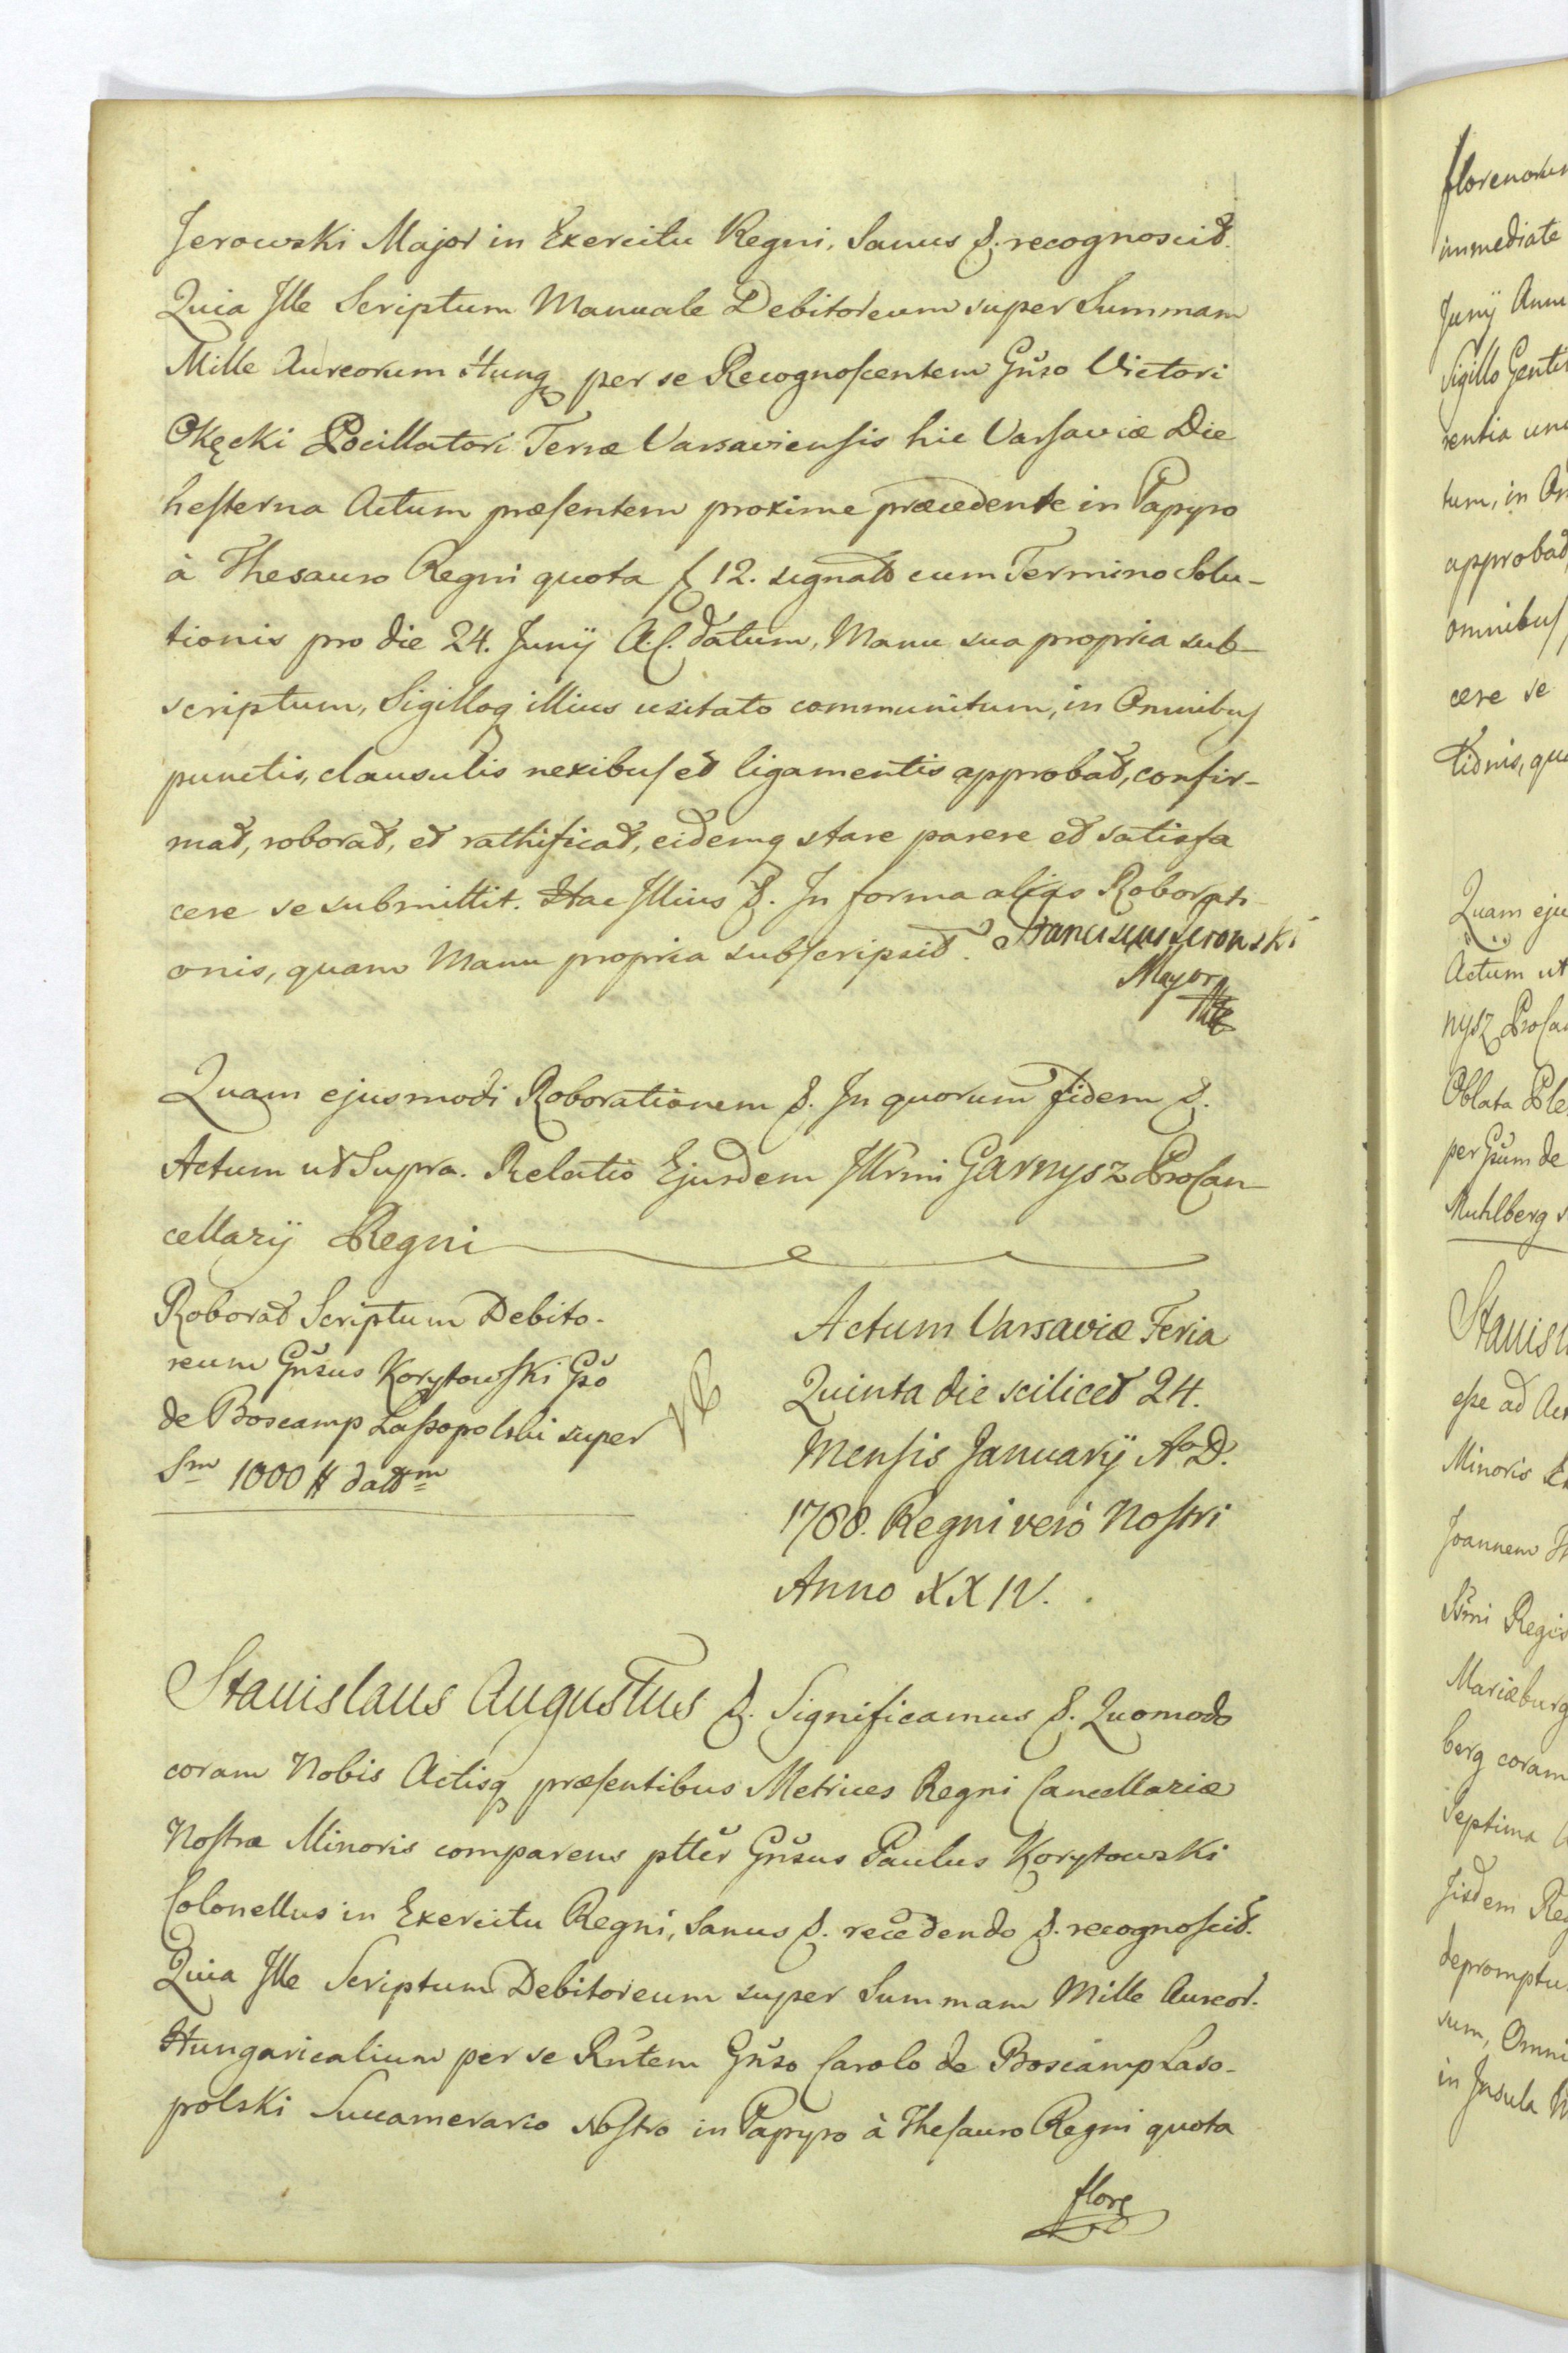 Jerowski Major in Exercitu Regni, Sanus &. recognoscit.
Quia Ille Scriptum Manuale Debitoreum super Summam
Mille Aureorum Hungq per se Recognoscentem Gnŏso Victori
Okęcki Pocillatori Terræ Varsaviensis hic Varsaviæ Die
hesterna Actum præsentem proxime præcedente in Papyro
à Thesauro Regni quota f 12. signato cum Termino Solu-
tionis pro die 24. Junÿ A.C. datum, Manu sua propria sub-
scriptum, Sigilloq illius usitato communitum, in Omnibus
punctis, clausulis nexibus et ligamentis approbat, confir-
mat, roborat, et rathificat, eidemq stare parere et satisfa
cere se submittit. Hac Illius &. In forma aliqs Roborati-
onis, quam Manu propria subscripsit. Franciscus Jerowski
Mayor
Quam ejusmodi Roborationem &. In quorum fidem &.
Actum ut Supra. Relatio Ejusdem Illrmi Garnysz ProCan-
cellarÿ Regni
Roborat Scriptum Debito-
reum Gnŏsus Korytowski Gŏo
de Boscamp Lassopolski super
Sm 1000 # dattm
Actum Varsaviæ Feria
Quinta die scilicet 24.
Mensis Januarÿ Ao D.
1788. Regni verò Nostri
Anno XXIV.
Stanislaus Augustus &. Significamus &. Quomodo
coram Nobis Actisq præsentibus Metrices Regni Cancellariæ
Nostræ Minoris comparens ptlĕr Gnŏsus Paulus Korytowski
Colonellus in Exercitu Regni, Sanus &. recedendo &. recognoscit.
Quia Ille Scriptum Debitoreum super Summam Mille Aureor.
Hungaricalium per se Rn̆tem Gnŏso Carolo de Boscamp Laso-
polski Succamerario Nostro in Papyro à Thesauro Regni quota
flore
immediate
Sigillo
approbat
cere se
Quam
Actum ut
nysz
Oblata
Muhlberg
Minoris
Joannem
Regis
berg coram
Septima
in Insula